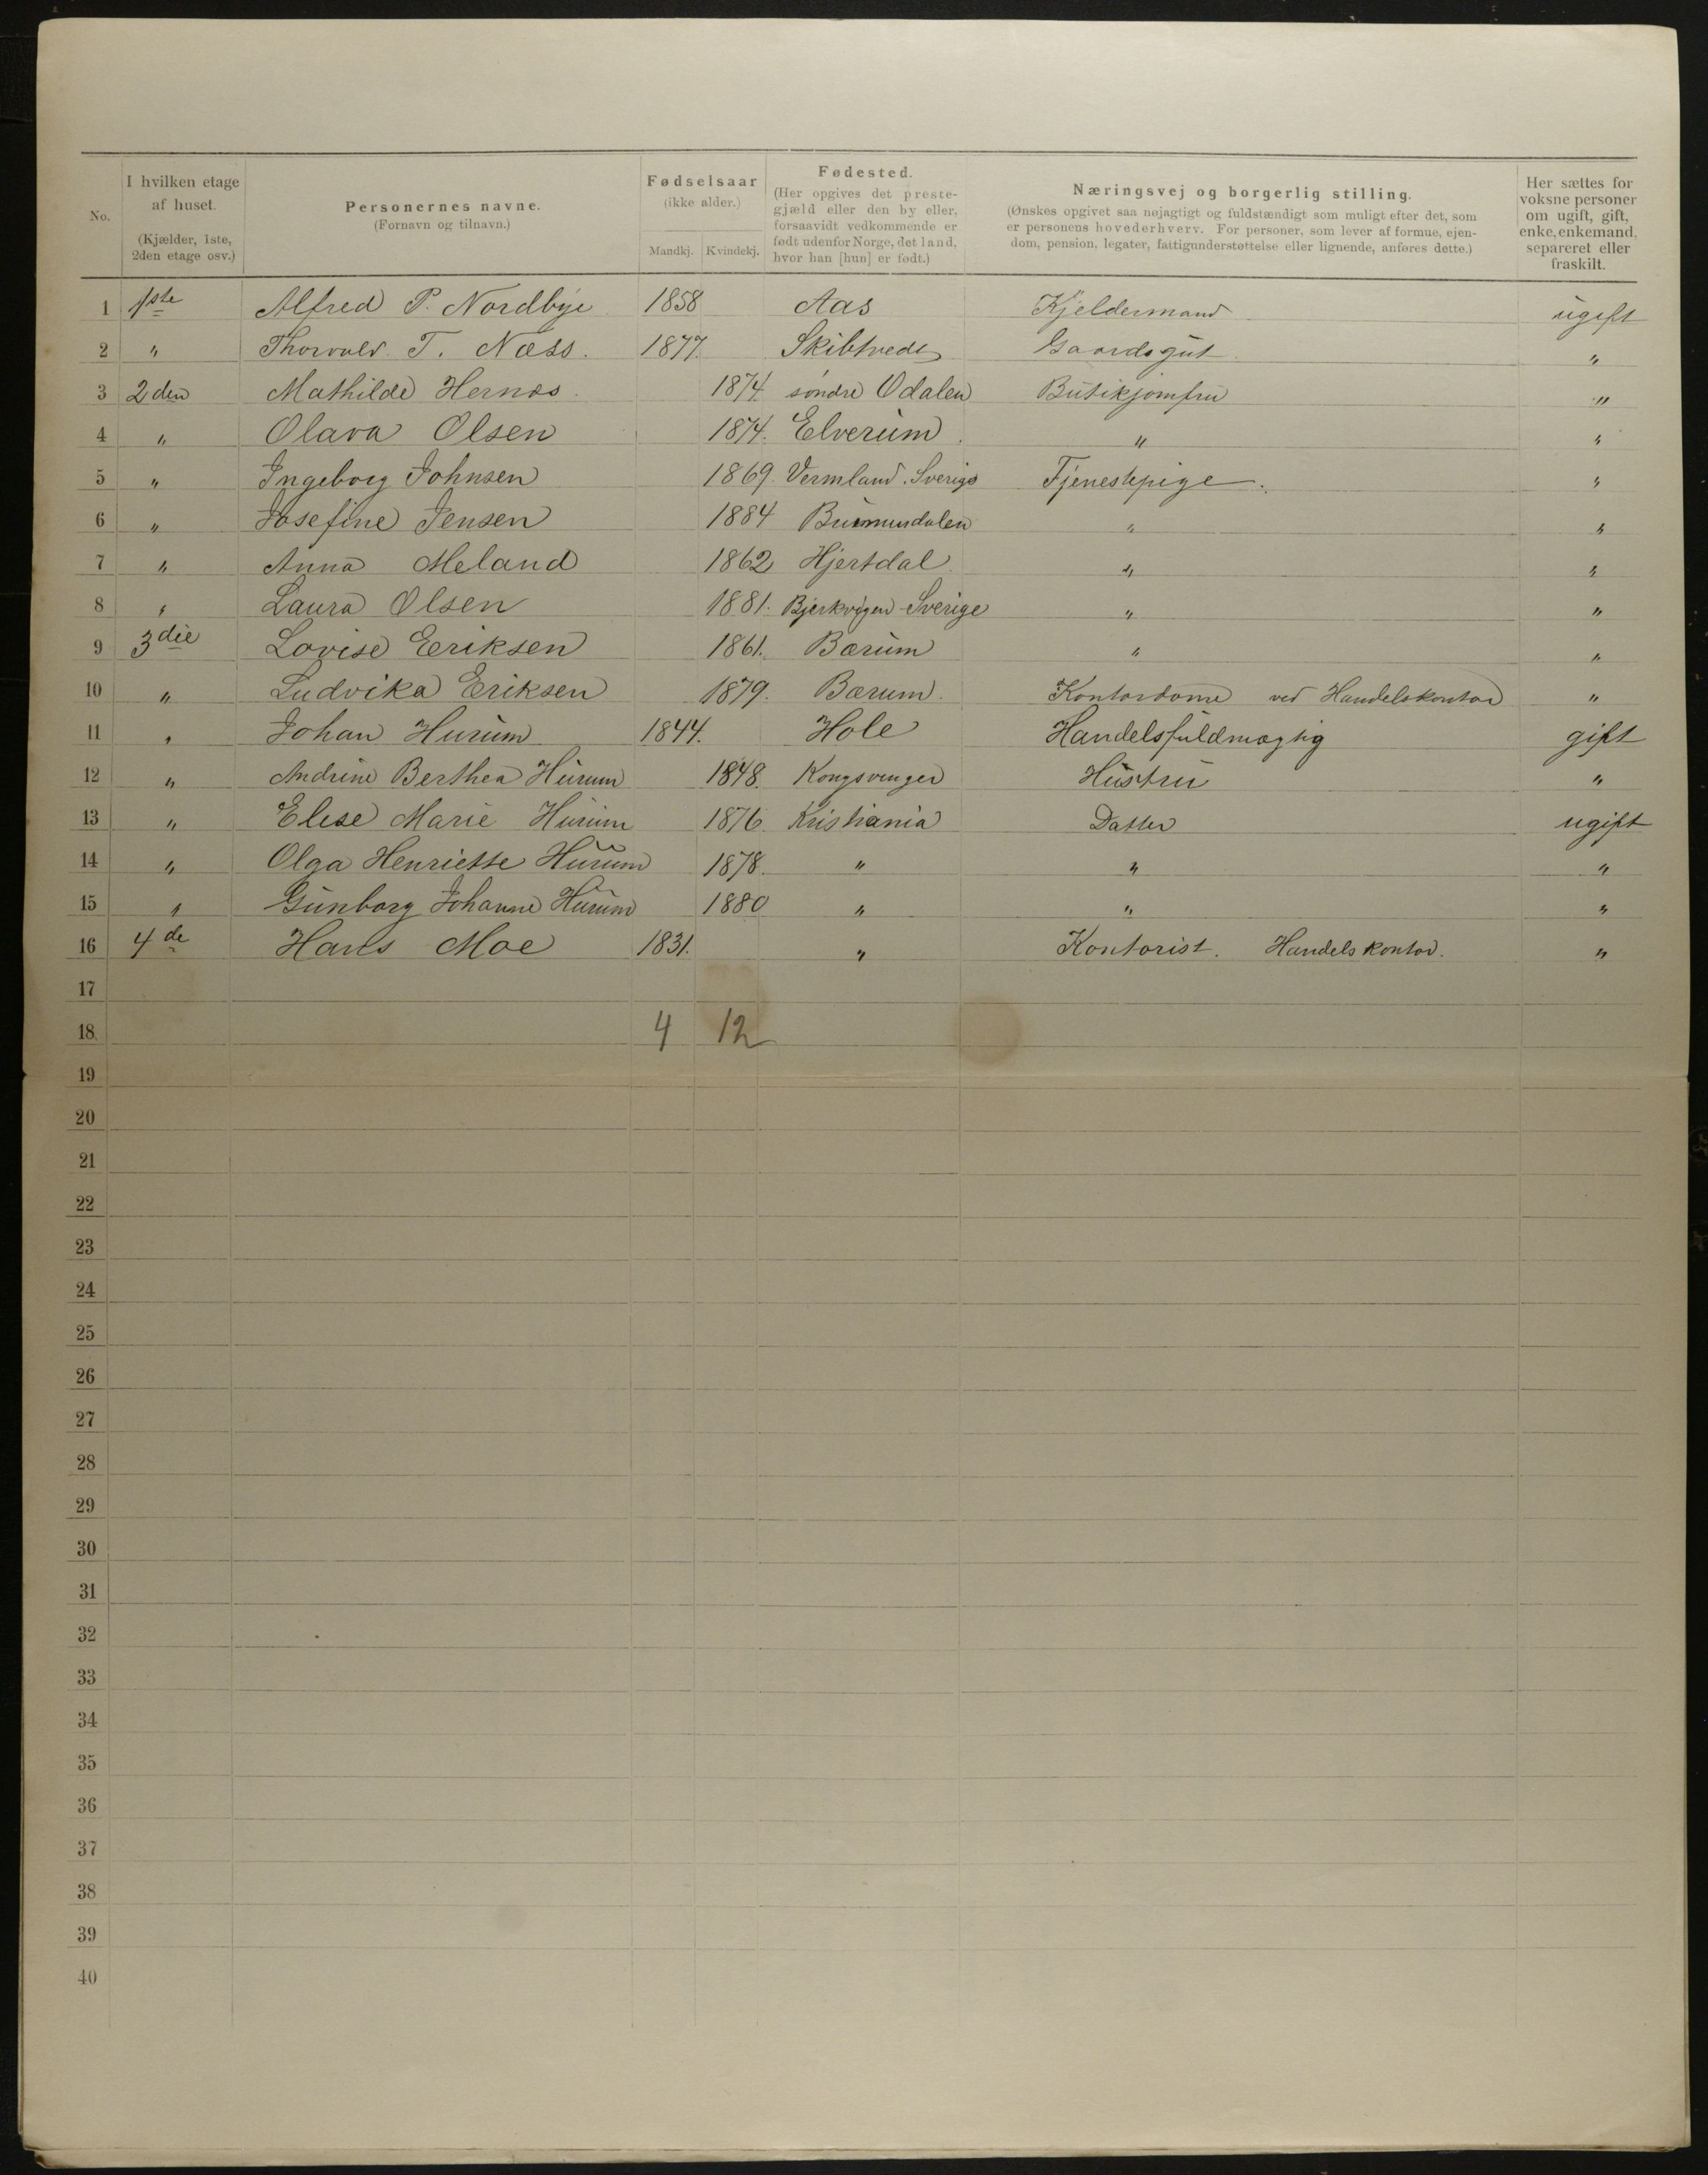 No. | I hvilken etage af huset. (Kjælder, 1ste, 2den etage osv.) | Personernes navne. (Fornavn og tilnavn.) | Fødselsaar (ikke alder.) Mandkj. | Kvindekj. | Fødested. (Her opgives det prestegjæld eller den by eller, forsaavidt vedkommende er født udenfor Norge, det land, hvor han [hun] er født.) | Næringsvej og borgerlig stilling. (Ønskes opgivet saa nøjagtigt og fuldstændigt som muligt efter det, som er personens hovederhverv. For personer, som lever af formue, ejendom, pension, legater, fattigunderstøttelse eller lignende, anføres dette.) | Her sættes for voksne personer om ugift, gift, enke, enkemand, separeret eller fraskilt.
1 1ste Alfred P. Nordbye 1858 Aas Kjeldermand ugift
2 " Thorvald T. Næss. 1877. Skibtvedt Gaardsgut. "
3 2den Mathilde Hernæs. 1874. søndre Odalen Butikjomfru "
4 " Olava Olsen 1874. Elverum. " "
5 " Ingeborg Johnsen 1869. Vermland. Sverige Tjenestepige. "
6 " Josefine Jensen 1884 " "
7 " Anna Meland 1862 Hjertdal " "
8 " Laura Olsen 1881. Bjerkvigen - Sverige " "
9 3die Lovise Eeriksen 1861. Bærum " "
10 " Ludvika Eriksen 1879. Bærum. Kontordame ved Handelskontor "
11 " Johan Hurum 1844. Hole Handelsfuldmægtig gift
12 " Andrine Berthea Hurum 1848. Kongsvinger Hustru "
13 " Elise Marie Hurum 1876 Kristiania Datter ugift
14 " Olga Henriette Hurum 1878. " " "
15 " Gunborg Johanne Hurum 1880 " " "
16 4de Hans Moe 1831. " Kontorist. Handelskontor. "
17
18. 4 12
19
20
21
22
23
24
25
26
27
28
29
30
31
32
33
34
35
36
37
38
39
40